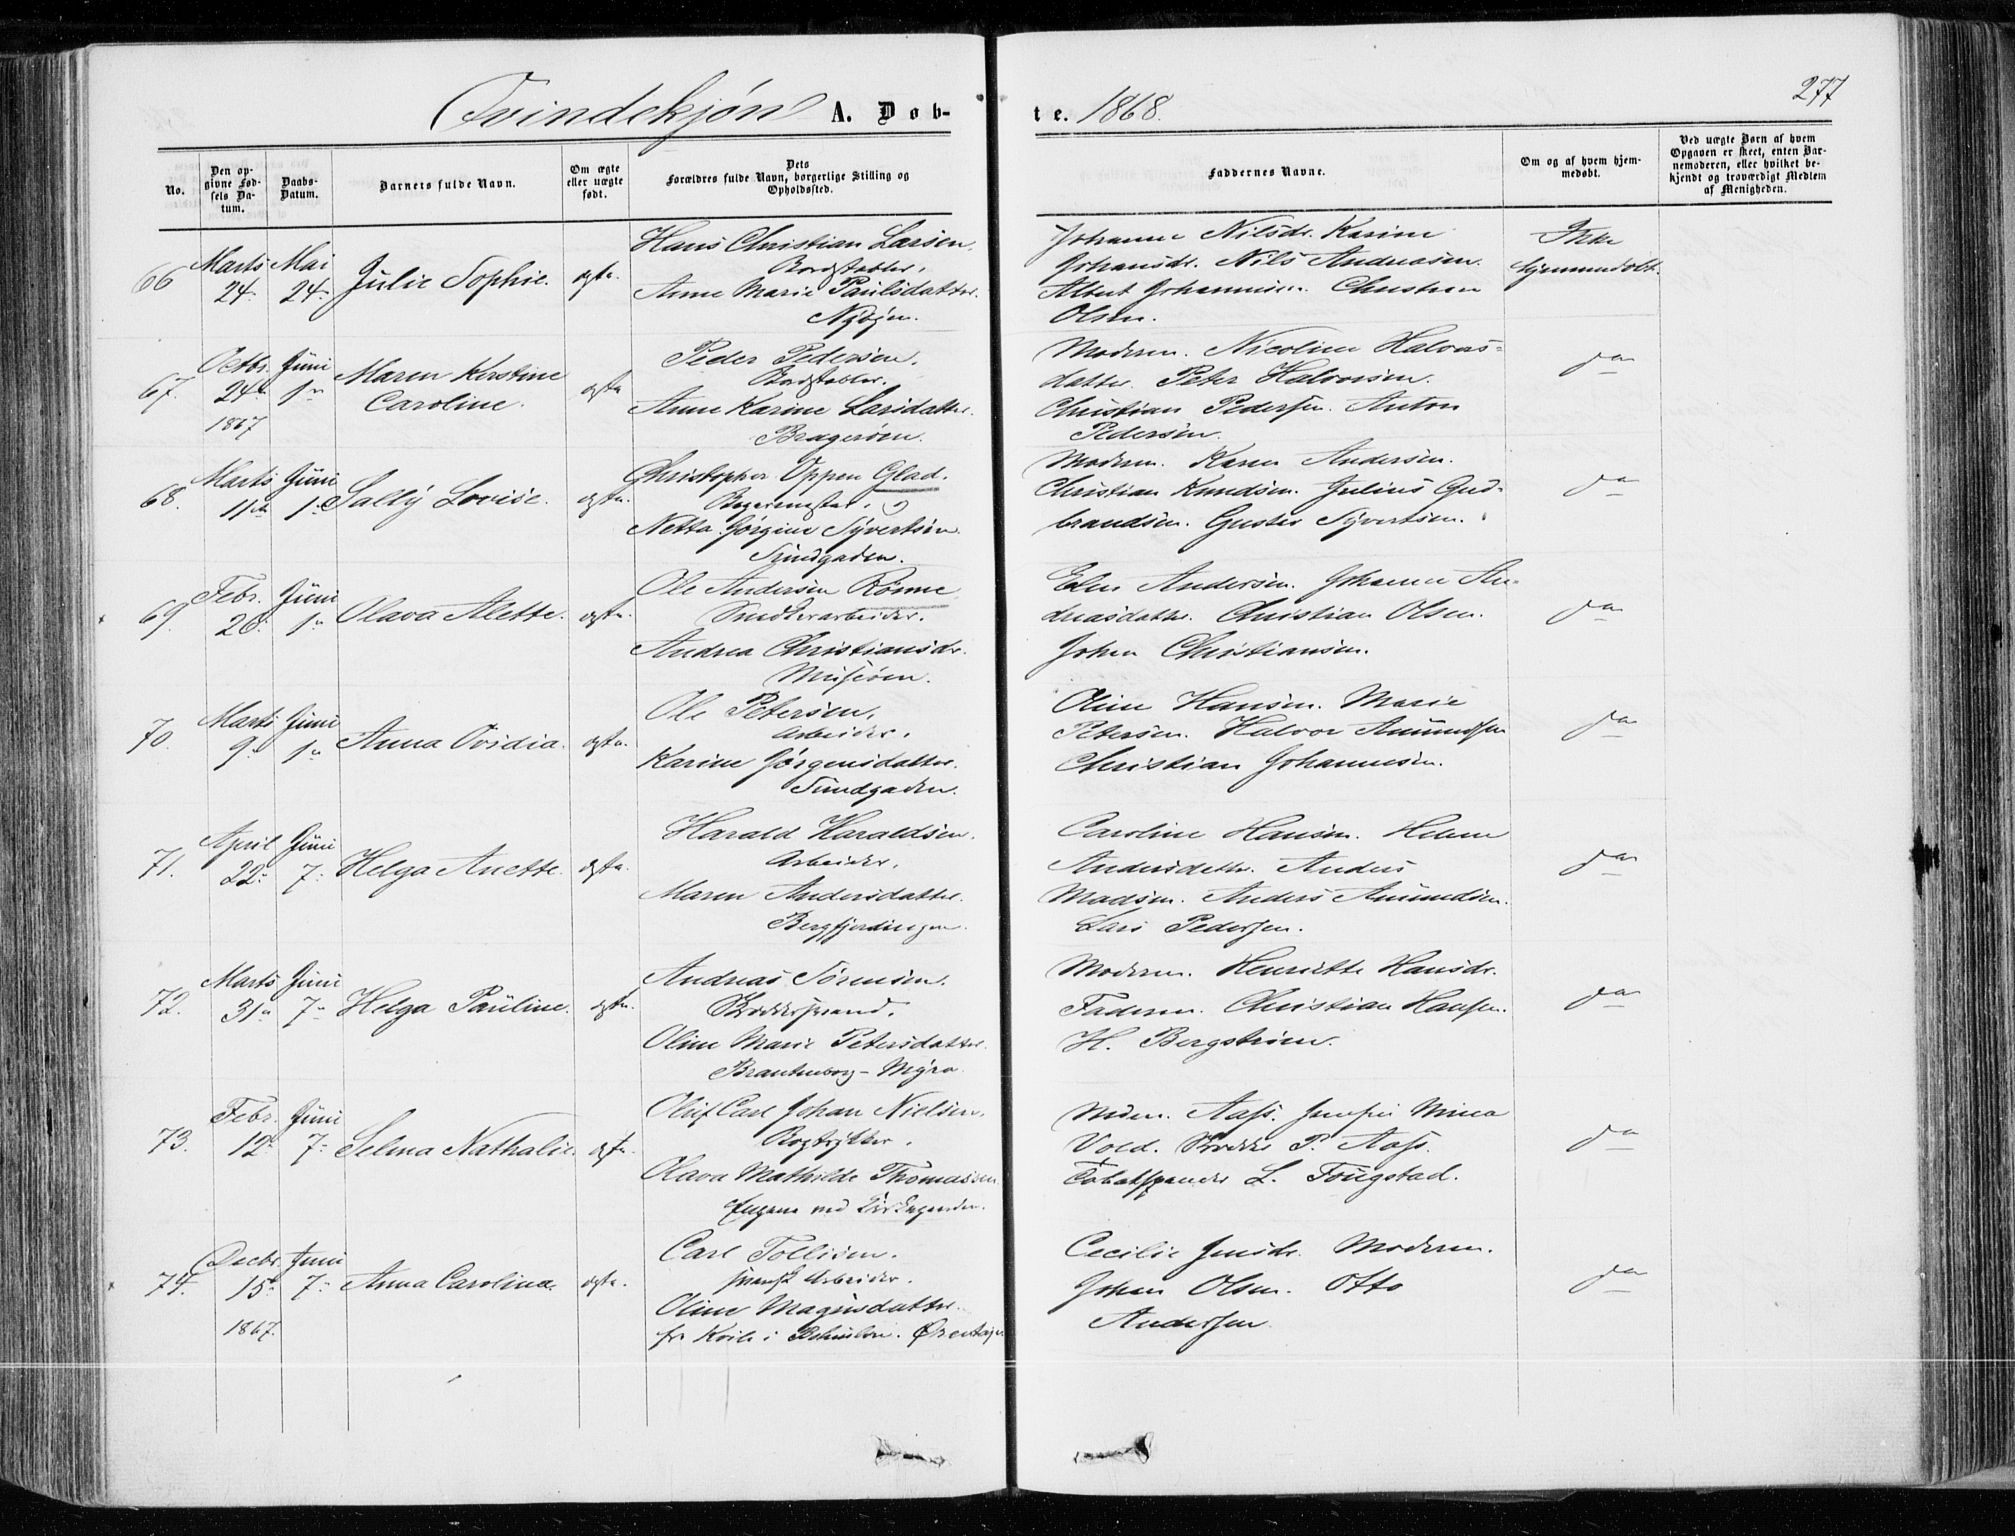 Qvindekjøn A. Døb-
te. 1868.
277
No.
Den opgivne Fødsels Datum.
Daabs-Datum.
Barnets fulde Navn.
Om ægte eller uægte født.
Dets Forældres fulde Navn, borgerlige Stilling og Opholdssted.
Faddernes Navne.
Om og af hvem hjemmedøbt.
Ved uægte Børn af hvem Opgaven er skeet, enten Barnemoderen, eller hvilket bekjendt og troværdigt Medlem af Menigheden.
66 Marts 24. Mai 24. Julie Sophie. ægte.
Hans Christian Larsen.
Bordstabler.
Anne Marie Paulsdatter.
Nybyen.
Johanne Nilsdr. Karine
Johansdr. Nils Andreasen.
Albert Johannesen. Christian
Olsen.
Ikke
hjemmedøbt.
67. Octbr. 24 1867 Juni 1 Maren Kirstine
Caroline. ægte
Peder Pedersen.
Bordstabler.
Anne Karine Larsdatter.
Bragerøen.
Moderen. Nicoline Halvors-
datter. Peter Halvorsen.
Christian Pedersen. Anton
Pedersen.
do
68. Marts 11 Juni 1 Sally Lovise. ægte.
Christopher Oppen Glad.
Netta Jørgine Syvertsen.
Tundgaden.
Moderen. Karen Andersen.
Christian Knudsen. Julius Gud-
brandsen. Gustav Syvertsen.
do
69. Febr. 26. Juni 1 Olava Alette. ægte.
Ole Andersen Rønne
Smedierarbeider.
Andrea Christiansdr.
Møsiøen.
Elen Andersen. Johanne An-
dreasdatter. Christian Olsen.
Johan Christiansen.
do
70. Marts 9 Juni 1 Anna Ovidia. ægte.
Ole Petersen.
Arbeider.
Karine Jørgensdatter.
Tundgaden.
Oline Hansen. Marie
Petersen. Halvor Amundsen
Christian Johannesen.
do
71. April 22. Juni 7. Helga Anette. ægte.
Harald Haraldsen.
Arbeider.
Maren Andersdatter.
Bergfjerdingen.
Caroline Hansen. Helene
Andersdatter. Anders
Madsen. Anders Amundsen.
Lars Pedersen.
do
72. Marts 31 Juni 7 Helga Pauline. ægte.
Andreas Sørensen.
Oline Marie Petersdatter.
Brantenborg - Myra.
Moderen. Henriette Hansdr.
Faderen. Christian Hansen.
H. Bergstrøm.
do
73. Febr. 12. Juni 7. Selma Nathalie. ægte.
Oluf Carl Johan Nielsen.
Bogtrykker.
Olava Mathilde Thomassen
Engene ved Kirkegaarden.
Mdm. Aass. Jomfru Mina
Vold. P. Aass.
Tobakspinder L. Fougstad.
do
74. Decbr. 15. 1867. Juni 7. Anna Carolina. ægte.
Carl Tollisen.
svensk Arbeider.
Oline Magnusdatter.
fr i Bohuslen. Ørentajen
Cecilie Jensdr. Moderen.
Johan Olsen. Otto
Andersen.
do